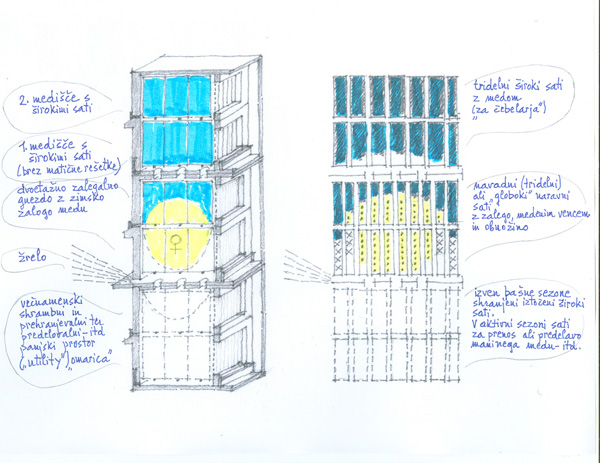 2. medišče s
širokimi sati
1. medišče s
širokimi sati
(brez matične rešetke)
dvoetažno zalegalno
gnezdo z zimsko
zalogo medu
žrelo
večnamenski
shrambni in
prehranjevalni ter
predelovalni-itd
panjski prostor
(„utility") „omarica"
♀
tridelni široki sati
z medom
(za čebelarja")
„
navadni (tridelni)
ali „globoki" naravni
sati
z zalego, medenim vencem
in obnožino
izven pašne sezone
shranjeni iztočeni široki
sati.
V aktivni sezoni sati
za prenos ali predelavo
maninega medu-itd.